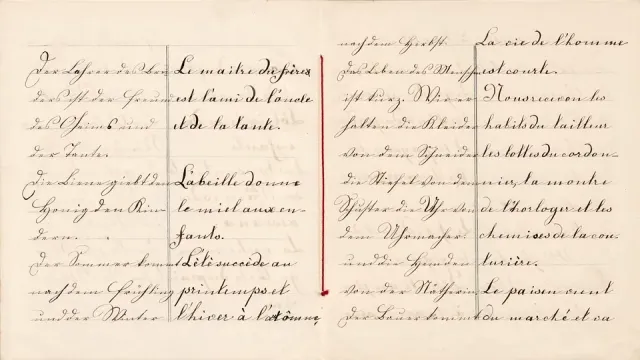 Der Lehrer des Bru
ders ist der Freund
des Oheims und
der Tante.
Die Biene giebt den
Honig den Kin
dern.
Der Sommer kommt
nach dem Frühling
und der Winter
Le maitre du frères
est l'ami de l'oncle
et de la tante.
L'abeille donne
le miel aux en-
fants.
L'été succède au
printemps et
l'hiver à l'
nach dem Herbst.
Das Leben des Menschen
ist kurz. Wir er
halten die Kleider
von dem Schneider
die Stiefel von dem
Schuster die Uhr von
dem Uhrmacher.
und die Hemden
von der Nätherin
Der Bauer kommt
La vie de l'homme
est courte.
Nous recevon les
habits du tailleur
les bottes du cordon-
nier, la montre
de l'horloger et les
chemises de la cou
turière.
Le paisen vient
du marché et va